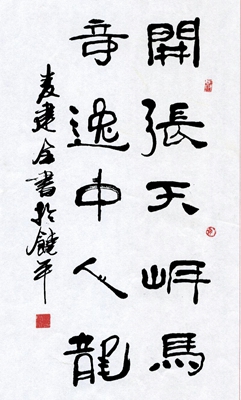 開張天岸馬
奇逸中人龍
麦建合書於饒平